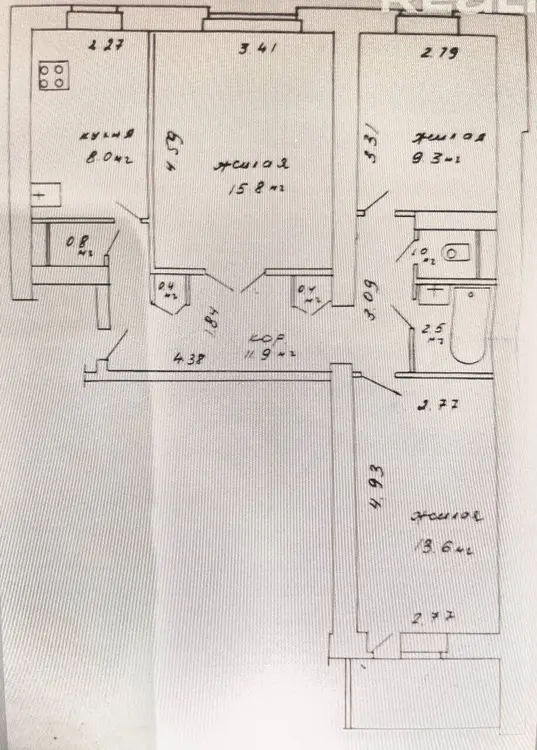 2.27
3.41
2.79
кухня
8.0 м2
4.59
жилая
15.8 м2
3.31
жилая
9.3 м2
0.8
м2
1.0
м2
0.4
м2
0.4
м2
1.84
3.09
2.5
м2
кор
11.9 м2
4.38
2.77
4.93
жилая
13.6 м2
2.77